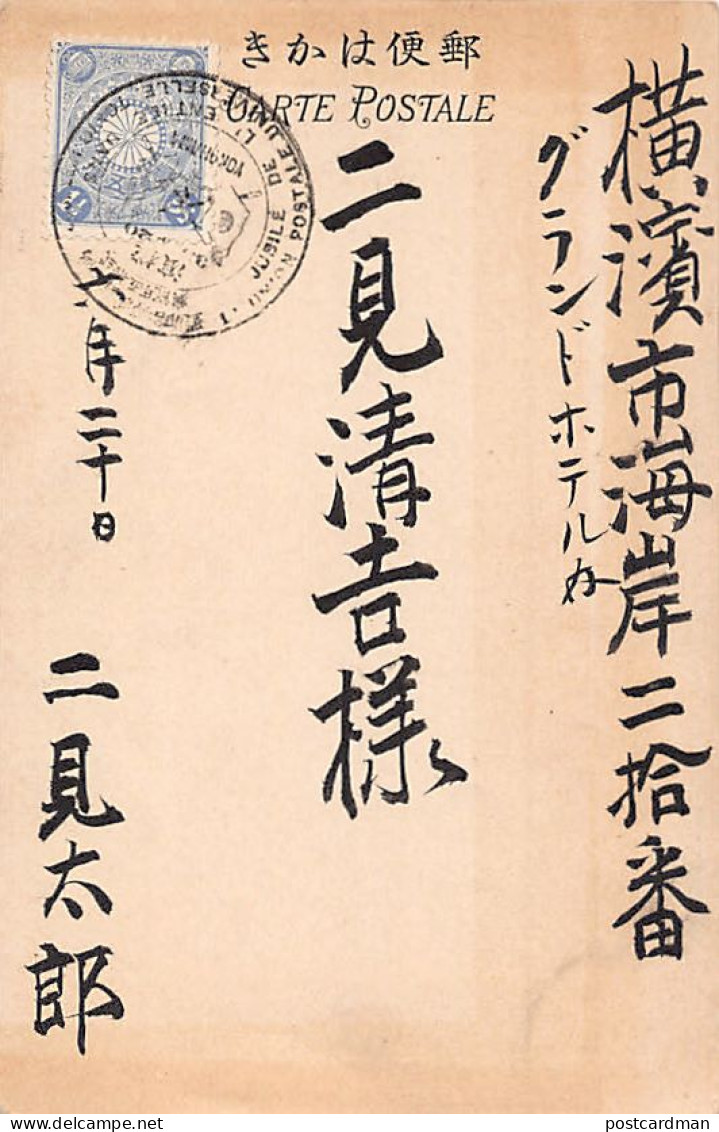 きかは便郵
CARTE POSTALE
横濱市海岸二拾番
グランドホテル内
二見清吉様
六月二十日
二見太郎
JUBILÉ DE L'ENTRÉE
POSTALE UNIVERSELLE
YOKOHAMA
postcardman